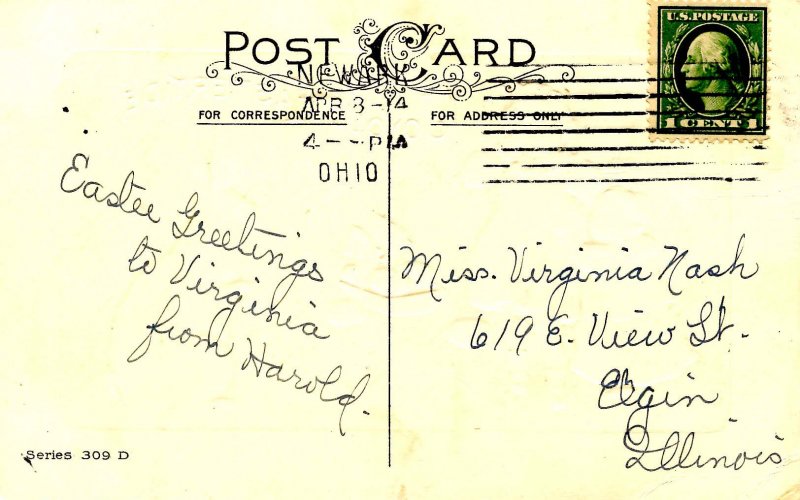 POST CARD
U.S. POSTAGE
1 CENT 1
NEWARK
APR 8-14
4--PM
OHIO
FOR CORRESPONDENCE
FOR ADDRESS ONLY
Easter Greetings
to Virginia
from Harold.
Miss. Virginia Nash
619 E. View St.
Elgin
Illinois
Series 309 D